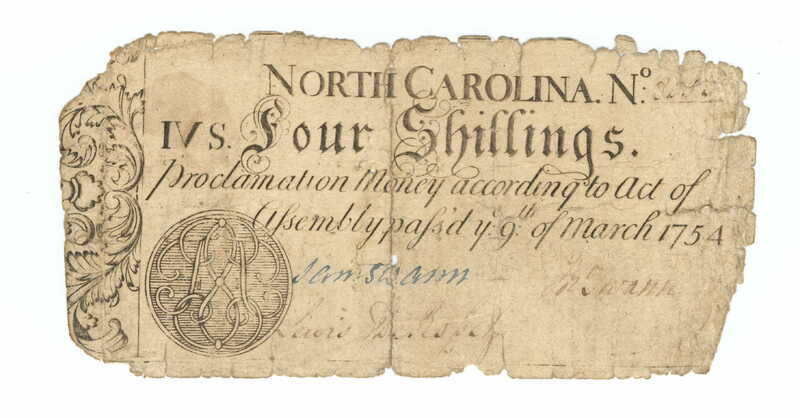 NORTH CAROLINA. Nº:
IV S. Four Shillings.
Proclamation Money according to Act of
Assembly paſs'd yᵉ 9ᵗʰ of March 1754
Sam Swann
Jnº Swann
Lewis